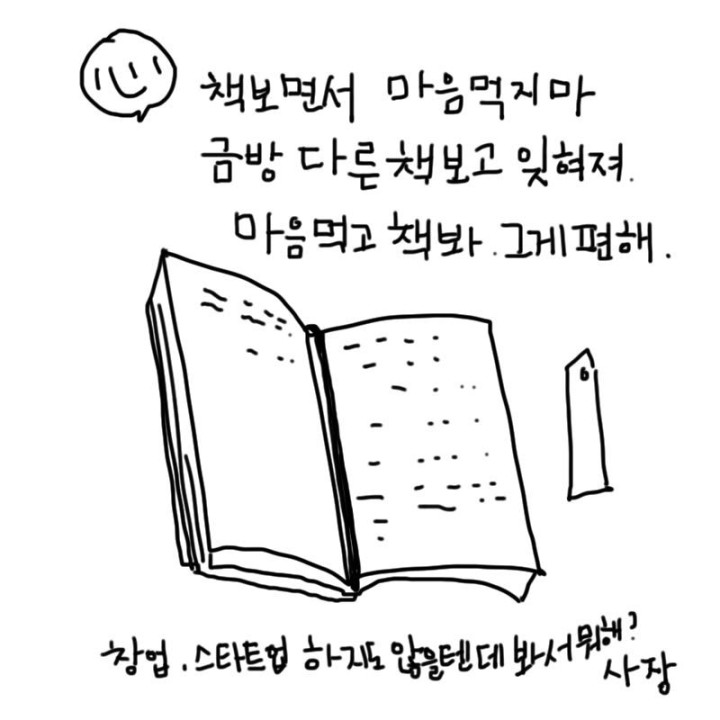 책보면서 마음먹지마
금방 다른책보고 잊혀져.
마음먹고 책봐. 그게편해.
창업. 스타트업 하지도 않을텐데 봐서뭐해?
사장